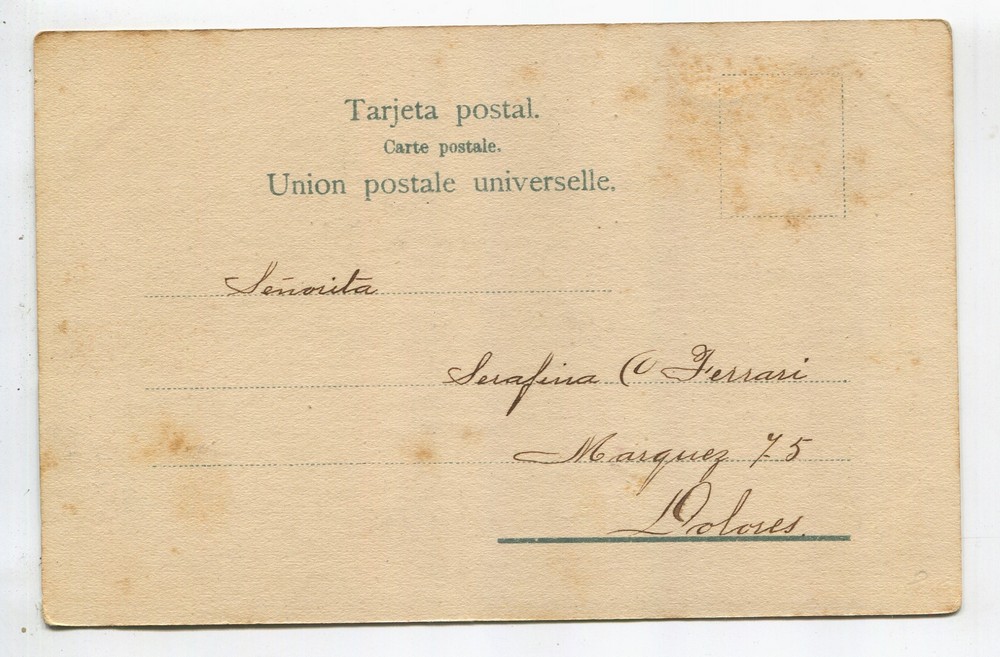 Tarjeta postal.
Carte postale.
Union postale universelle.
Señorita
Serafina C Ferrari
Marquez 75
Dolores.